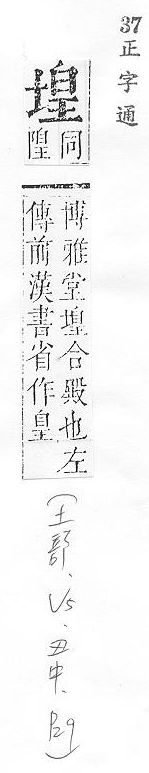 37正字通
堭 同隍
博雅堂堭合殿也左
傳前漢書省作皇
(土部、V5、丑中、P29)